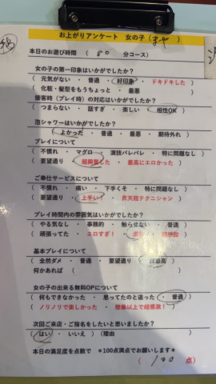 お上がりアンケート 女の子(
本日のお遊び時間 ( 分コース)
女の子の第一印象はいかがでしたか?
( 元気がない ・ 普通 ・ 好印象 ・ ドキドキした
・ 化粧・髪型をもうちょっと ・ 最悪 )
接客時(プレイ時)の対応はいかがでしたか?
( つまらない ・ 話す ・ 楽しい ・ 相性OK )
泡シャワーはいかがでしたか?
( よかった ・ 普通 ・ 最悪 ・ 期待外れ )
プレイについて
( 不慣れ ・ マグロ ・ 演技バレバレ ・ 特に問題なし
・ 要望通り ・ ・ 最高にエロかった )
ご奉仕サービスについて
( 不慣れ ・ 痛い ・ 下手くそ ・ 特に問題なし
・ 要望通り ・ 上手い ・ 昇天超テクニシャン )
プレイ時間内の雰囲気はいかがでしたか?
( やる気なし ・ 事務的 ・ 触らせない ・ 普通
・ 頑張ってた ・ エロすぎ! ・
基本プレイについて
( 全然ダメ ・ 普通 ・ 要望通り ・
何かあれば ( )
女の子の出来る無料OPについて
( 何もできなかった ・ 思ってたのと違った ・ 普通
・ ノリノリで楽しかった ・ 想像以上で超感激! )
次回ご来店・ご指名をしたいと思いましたか?
( はい ・ いいえ ) (理由 )
本日の満足度を点数で *100点満点でお願いします*
( 100 点)